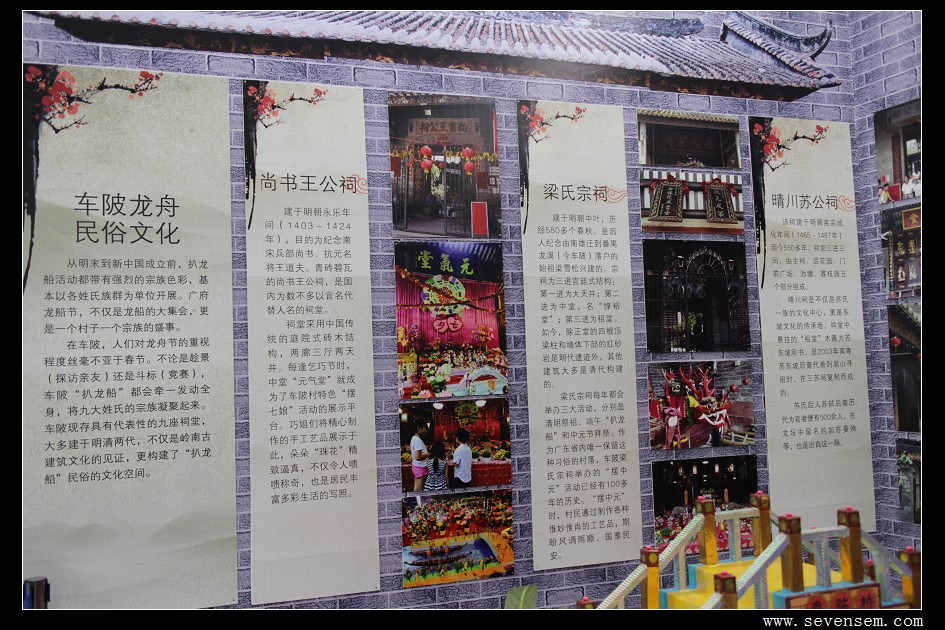 车陂龙舟
民俗文化
从明末到新中国成立前，扒龙
船活动都带有强烈的宗族色彩，基
本以各姓氏族群为单位开展。广府
龙船节，不仅是龙船的大集会，更
是一个村子一个宗族的盛事。
在车陂，人们对龙舟节的重视
程度丝毫不亚于春节。不论是趁景
（探访亲友）还是斗标（竞赛），
车陂“扒龙船”都会牵一发动全
身，将九大姓氏的宗族凝聚起来。
车陂现存具有代表性的九座祠堂，
大多建于明清两代，不仅是岭南古
建筑文化的见证，更构建了“扒龙
船”民俗的文化空间。
尚书王公祠
建于明朝永乐年
间（1403－1424
年），目的为纪念南
宋兵部尚书、抗元名
将王道夫。青砖碧瓦
的尚书王公祠，是国
内为数不多以官名代
替人名的祠堂。
祠堂采用中国传
统的庭院式砖木结
构，两廊三厅两天
井。每逢乞巧节时，
中堂“元气堂”就成
为了车陂村特色“摆
七娘”活动的展示平
台。巧姐们将精心制
作的手工艺品展示于
此，朵朵“珠花”精
致逼真，不仅令人啧
啧称奇，也是居民丰
富多彩生活的写照。
尚書王公祠
元氣堂
七夕
梁氏宗祠
建于明朝中叶，历
经580多个春秋。是后
人纪念由南雄迁到番禺
龙溪（今车陂）落户的
始祖梁雪松兴建的。宗
祠为三进宫廷式结构；
第一进为大天井；第二
进为中堂，名“惇裕
堂”；第三进为祖堂。
如今，除正堂的四根顶
梁柱和墙体下部的红砂
岩是明代遗迹外，其他
建筑大多是清代构建
的。
梁氏宗祠每年都会
举办三大活动，分别是
清明祭祖、端午“扒龙
船”和中元节拜祭。作
为广东省内唯一保留这
种习俗的村落，车陂梁
氏宗祠举办的“摆中
元”活动已经有100多
年的历史。“摆中元”
时，村民通过制作各种
惟妙惟肖的工艺品，期
盼风调雨顺、国泰民
安。
晴川苏公祠
该祠建于明朝宪宗成
化年间（1465－1487年）
距今550多年。祠堂三进三
间，由主祠、后花园、门
前广场、池塘、荔枝园五
个部分组成。
晴川祠是不仅是苏氏
一族的文化中心，更是东
坡文化的传承地。祠堂中
悬挂的“祖堂”木匾为苏
东坡所书，是2003年禺粤
苏东坡后裔代表到眉山寻
祖时，在三苏祠复制而成
的。
苏氏后人苏轼后裔历
代为官者便有500余人，在
文坛中留名的如苏曼殊
等，也是出自这一脉。
www.sevensem.com